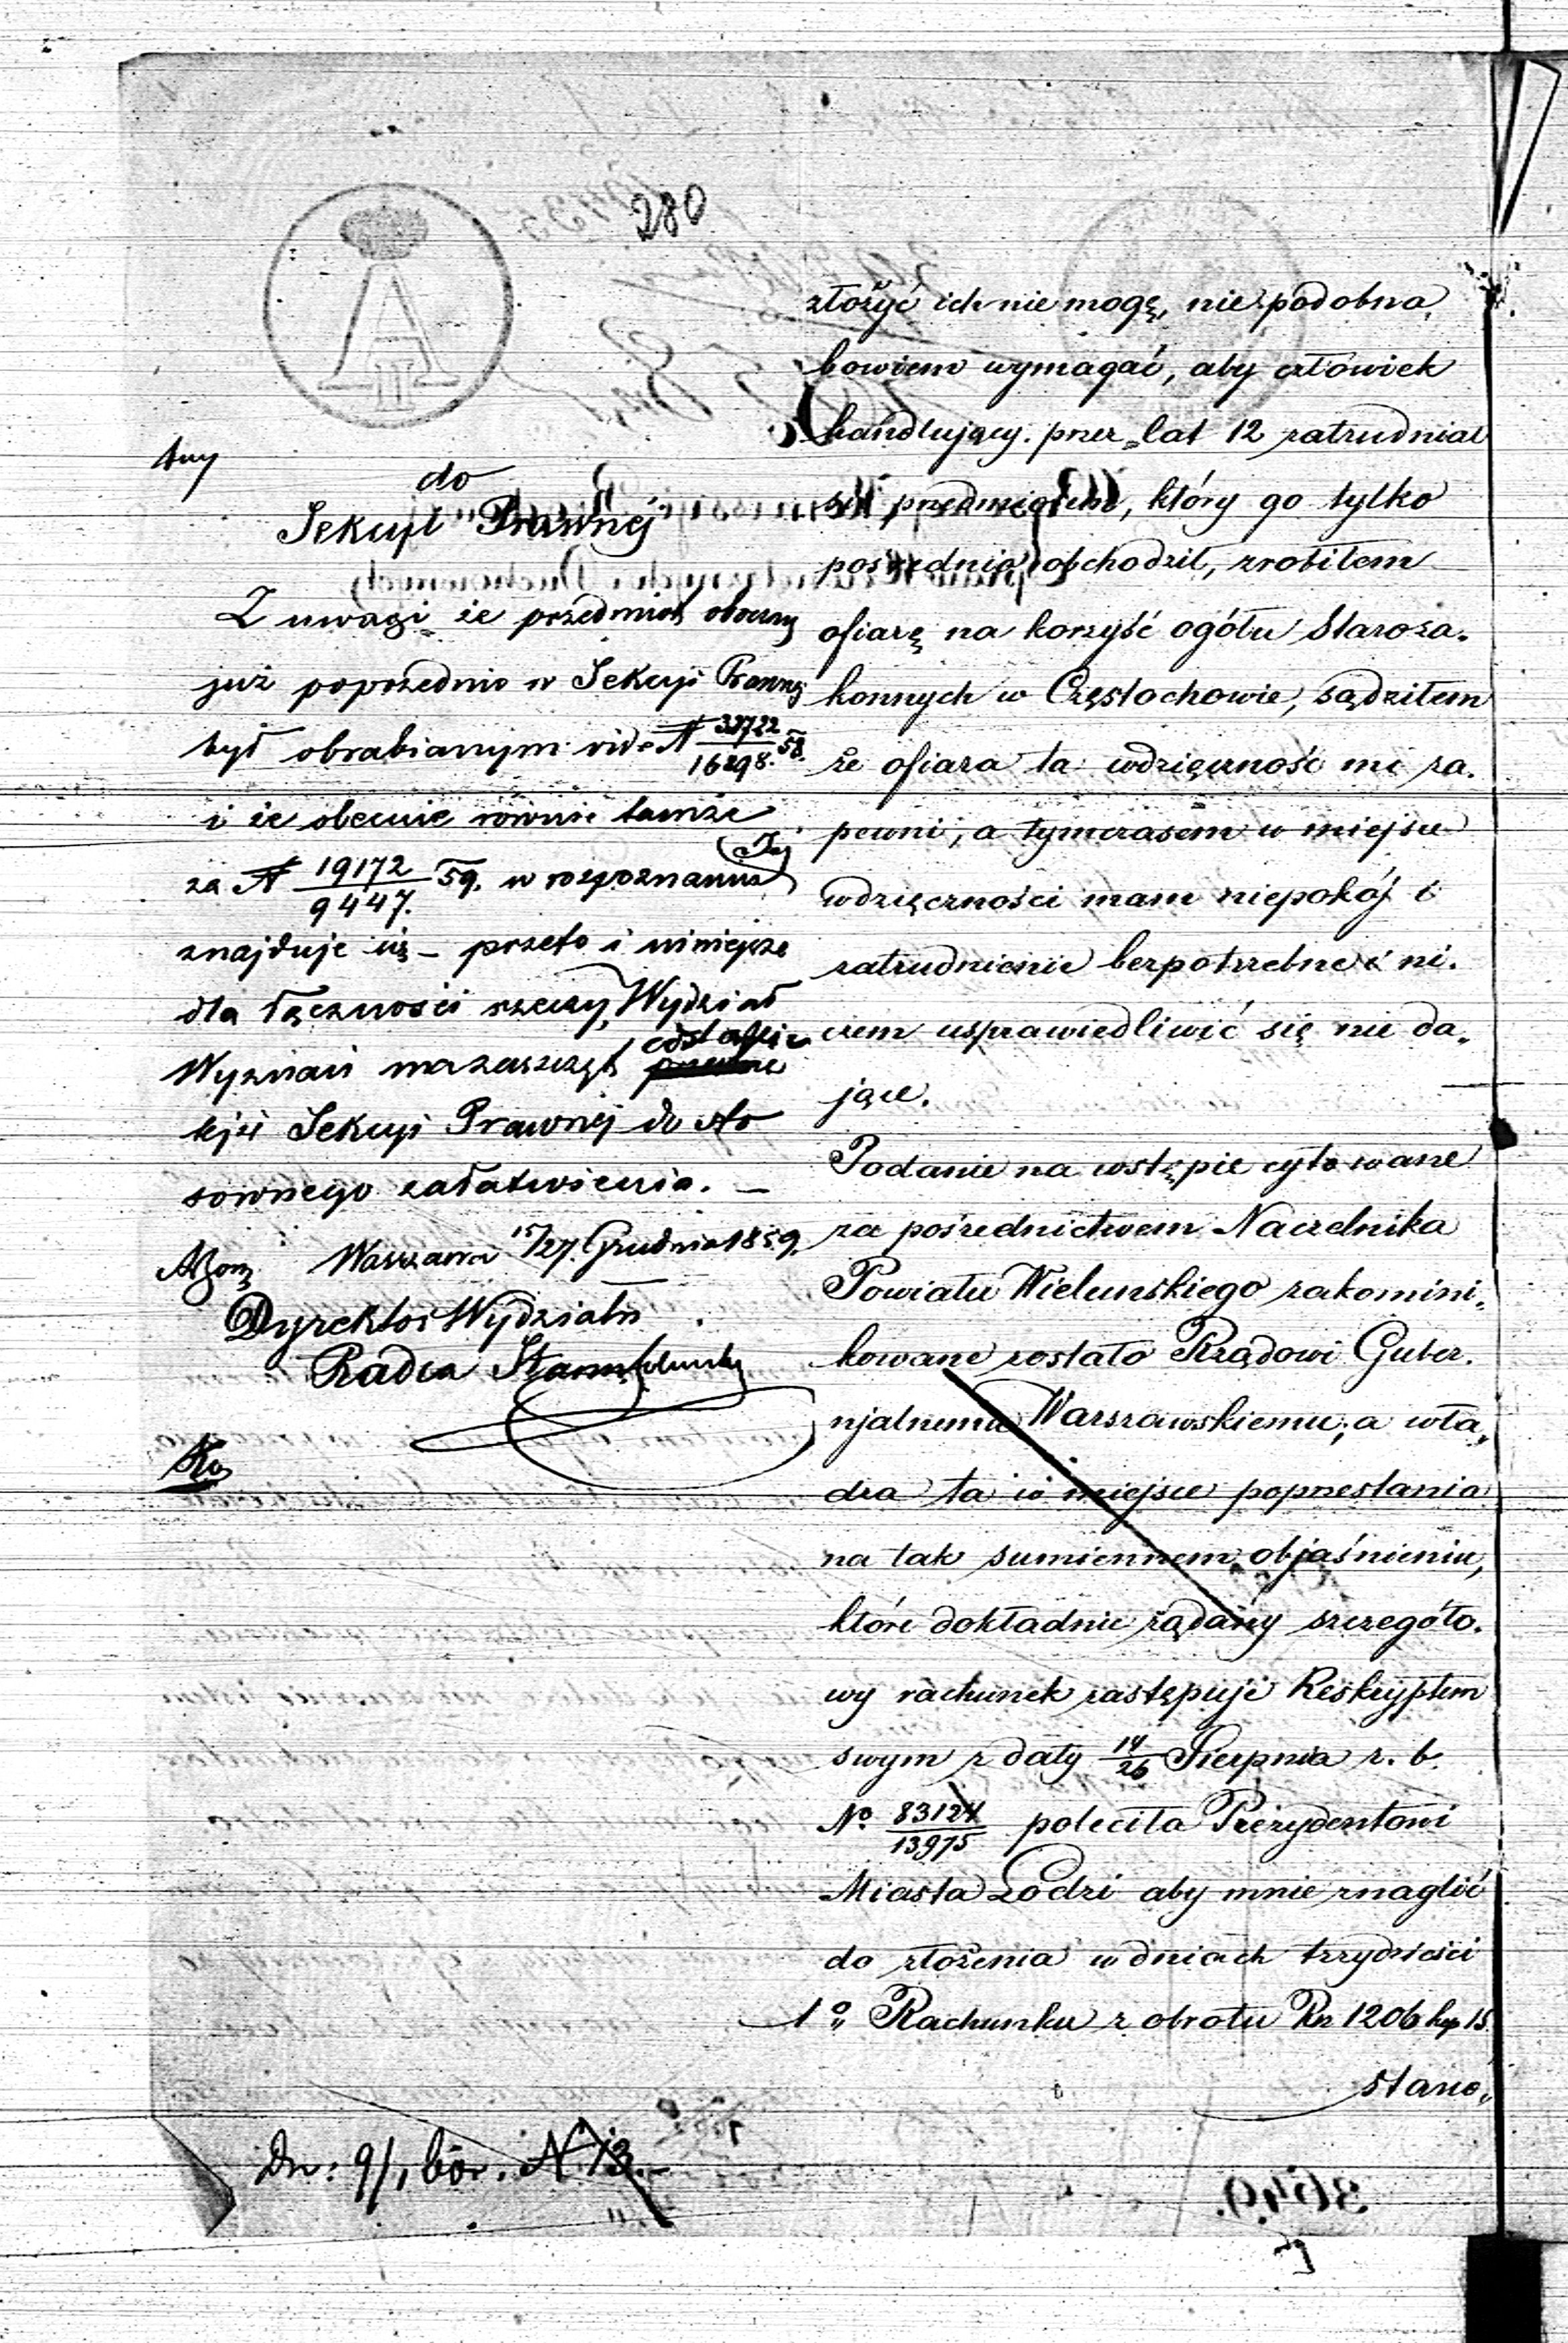 280
do
Sekcyi Prawnej
Z uwagi że przedmiot obecny
już poprzednio w Sekcyi Prawnej
był obrabianym vide N 33722/16298. 58.
i że obecnie również tamże
za N 19172/9447. 59. w rozpoznaniu Jej
znajduje się – przeto i niniejsze
dla łączności rzeczy, Wydział
Wyznań ma zaszczyt odstąpić
tejże Sekcyi Prawnej do sto
sownego załatwienia. –
Warszawa 15/27. Grudnia 1859.
Dyrektor Wydziału
Radca Stanu
Dn: 9/1 N 13.
złożyć ich nie mogę, nie podobna
bowiem wymagać, aby człowiek
handlujący przez lat 12 zatrudniał
się przedmiotem, który go tylko
pośrednio obchodził, zrobiłem
ofiarę na korzyść ogółu Staroza„
konnych w Częstochowie, sądziłem
że ofiara ta wdzięczność mi za„
pewni, a tymczasem w miejsce
wdzięczności mam niepokój i
zatrudnienie bezpotrzebne i ni„
czem usprawiedliwić się nie da„
jące.
Podanie na wstępie cytowane
za pośrednictwem Naczelnika
Powiatu Wielunskiego zakomini„
kowane zostało Rządowi Guber„
njalnemu Warszawskiemu, a wła„
dza ta w miejsce poprzestania
na tak sumiennem objaśnieniu,
które dokładnie żądany szczegóło„
wy rachunek zastępuje Reskryptem
swym z daty 14/26 Sierpnia r. b.
No 83124/13975 poleciła Prezydentowi
Miasta Łodzi aby mnie znaglić
do złożenia w dniach trzydzieści
1o„ Rachunku z obrotu Rs 1206 kop 15.
stano„